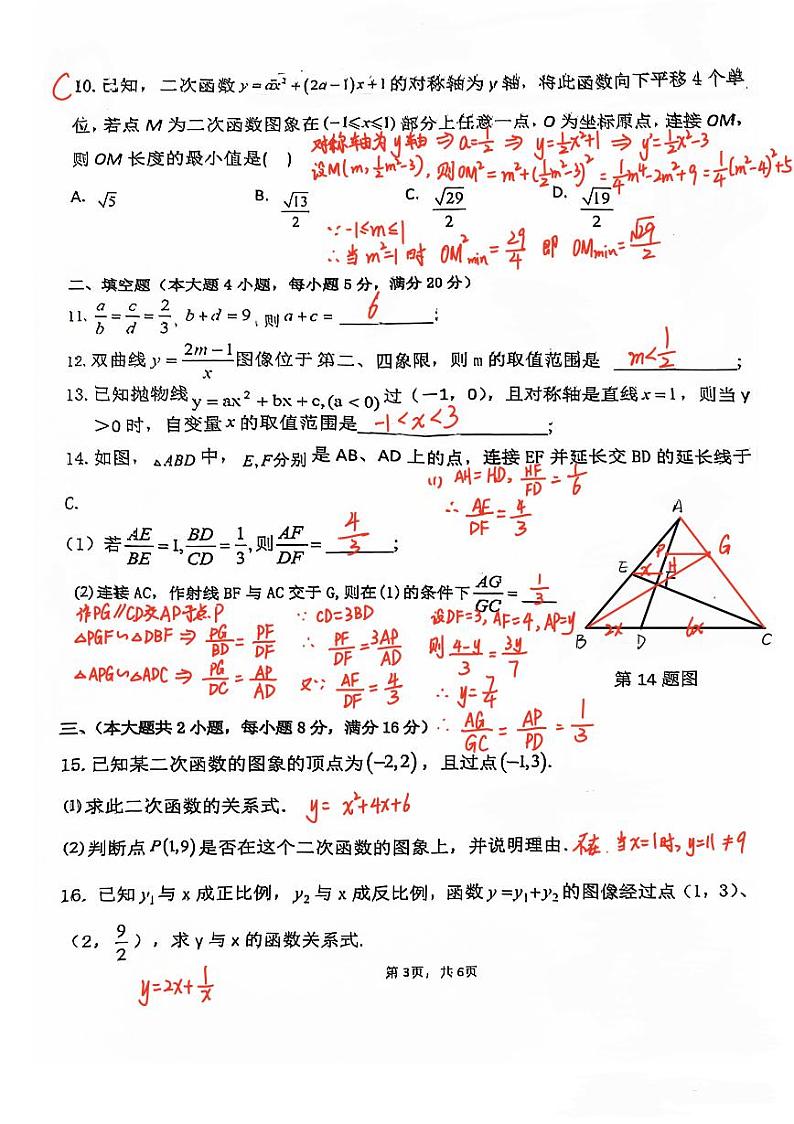 C 10. 已知，二次函数 y=ax²+(2a−1)x+1 的对称轴为 y 轴，将此函数向下平移 4 个单
位，若点 M 为二次函数图象在 (−1≤x≤1) 部分上任意一点，O 为坐标原点，连接 OM，
对称轴为y轴 ⇒ a=1/2 ⇒ y=1/2x²+1 ⇒ y'=1/2x²−3
则 OM 长度的最小值是( )
设M(m, 1/2m²−3), 则OM²=m²+(1/2m²−3)²=1/4m⁴−2m²+9=1/4(m²−4)²+5
A. √5 B. √13/2 C. √29/2 D. √19/2
∵ −1≤m≤1
∴ 当m²=1时 OM²min=29/4 即 OMmin=√29/2
二、填空题（本大题 4 小题，每小题 5 分，满分 20 分）
11、a/b=c/d=2/3，b+d=9，则 a+c= 6 ;
12. 双曲线 y=(2m−1)/x 图像位于 第二、四象限，则 m 的取值范围是 m<1/2 ;
13. 已知抛物线 y=ax²+bx+c,(a<0) 过（−1，0），且对称轴是直线 x=1，则当 y
>0 时，自变量 x 的取值范围是 −1<x<3 ;
14. 如图，△ABD 中，E,F分别 是 AB、AD 上的点，连接 EF 并延长交 BD 的延长线于
C.
(1) AH=HD, HF/FD=1/6
∴ AF/DF=4/3
（1）若 AE/BE=1, BD/CD=1/3, 则 AF/DF= 4/3 ;
(2)连接 AC，作射线 BF 与 AC 交于 G, 则在(1)的条件下 AG/GC= 1/3
作PG∥CD交AP于点P ∵ CD=3BD 设DF=3, AF=4, AP=y
△PGF∽△DBF ⇒ PG/BD=PF/DF ∴ PF/DF=3AP/AD 则 (4−y)/3=3y/7
△APG∽△ADC ⇒ PG/DC=AP/AD 又∵ AF/DF=4/3 ∴ y=7/4
∴ AG/GC=AP/PD=1/3
A
G
P
H
E
x
F
B
2x
D
6x
C
第 14 题图
三、（本大题共 2 小题，每小题 8 分，满分 16 分）
15. 已知某二次函数的图象的顶点为(−2,2)，且过点(−1,3).
(1)求此二次函数的关系式. y=x²+4x+6
(2)判断点 P(1,9)是否在这个二次函数的图象上，并说明理由. 不在. 当x=1时, y=11≠9
16. 已知 y₁与 x 成正比例，y₂ 与 x 成反比例，函数 y=y₁+y₂ 的图像经过点（1，3）、
（2，9/2），求 y 与 x 的函数关系式.
y=2x+1/x
第 3页，共 6页